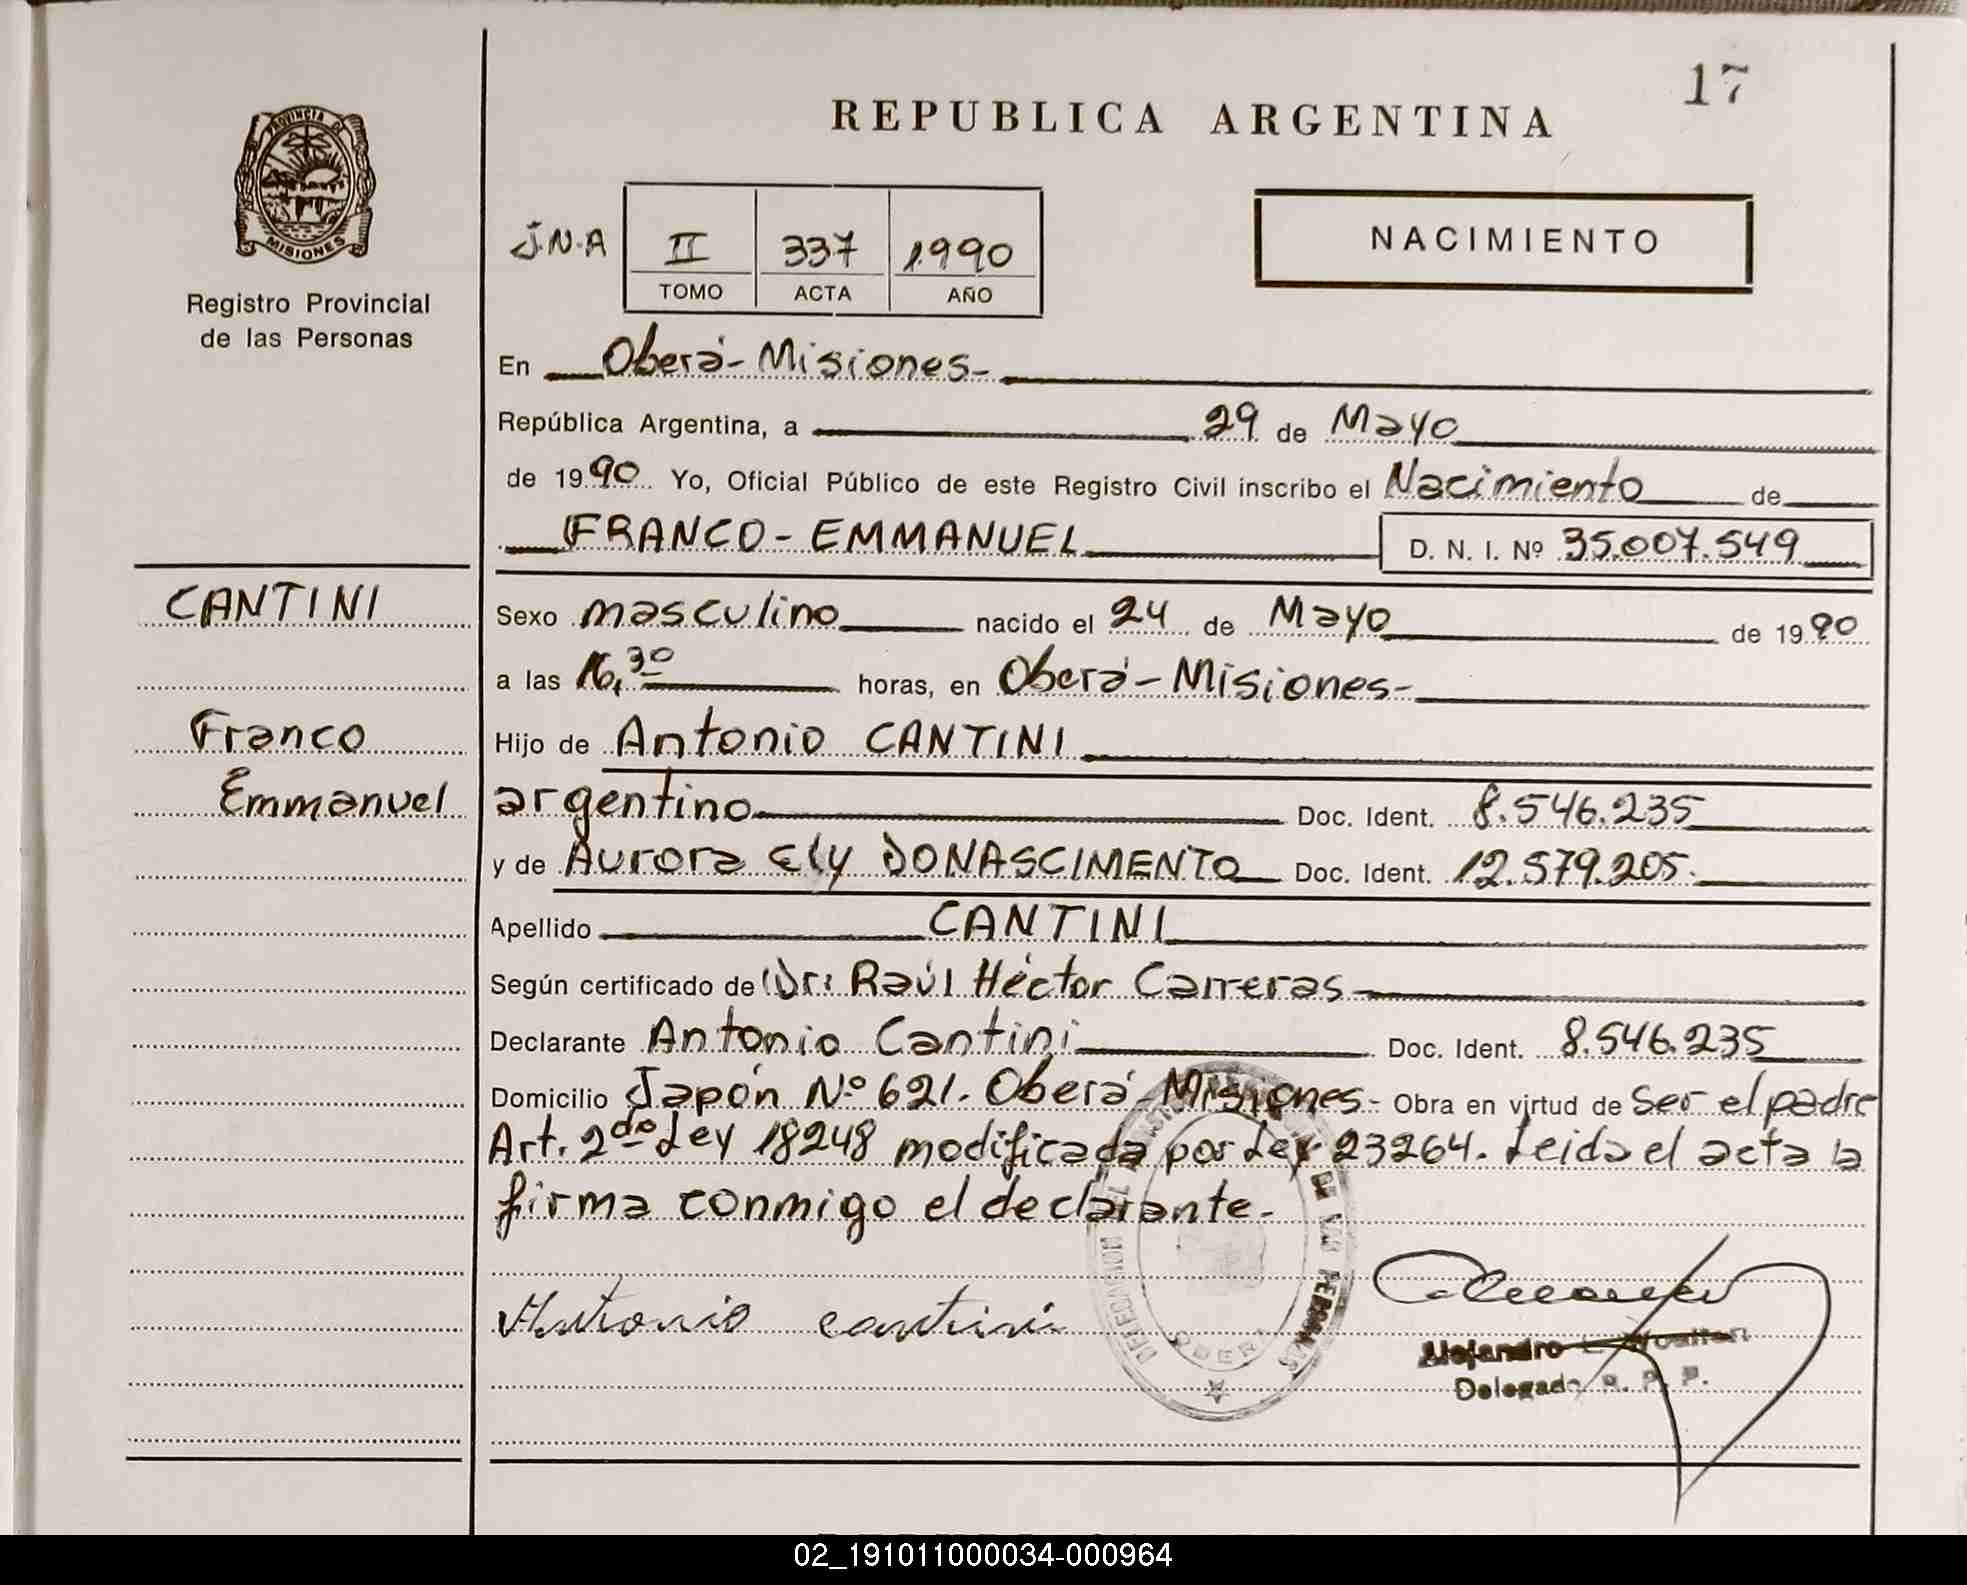 17
REPUBLICA ARGENTINA
PROVINCIA DE
MISIONES
Registro Provincial
de las Personas
NACIMIENTO
J.N.A II 337 1990
TOMO ACTA AÑO
En Oberá-Misiones-
República Argentina, a 29 de Mayo
de 1990 Yo, Oficial Público de este Registro Civil inscribo el Nacimiento de
FRANCO-EMMANUEL D. N. I. Nº 35.007.549
CANTINI
Franco
Emmanuel
Sexo masculino nacido el 24 de Mayo de 1990
a las 16,30 horas, en Oberá-Misiones-
Hijo de Antonio CANTINI
argentino Doc. Ident. 8.546.235
y de Aurora Ely DONASCIMENTO Doc. Ident. 12.579.205.
Apellido CANTINI
Según certificado de Dr: Raúl Héctor Carreras
Declarante Antonio Cantini Doc. Ident. 8.546.235
Domicilio Japón Nº 621. Oberá-Misiones- Obra en virtud de Ser el padre
Art. 2do Ley 18248 modificada por Ley 23264. Leida el acta la
firma conmigo el declarante.
Antonio cantini
DE LAS PERSONAS
OBERA
Alejandro
Delegado R. P. P.
02_191011000034-000964